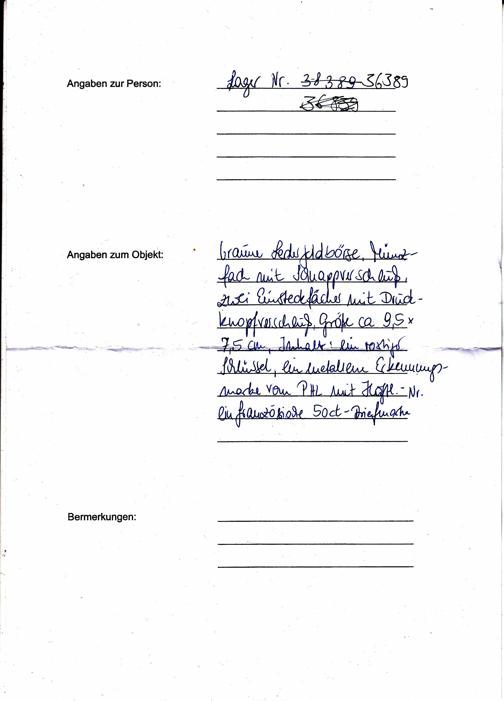 Angaben zur Person:
Lager Nr. 38389 36389
Angaben zum Objekt:
braune Ledergeldbörse, Münz-
fach mit Schnappverschluß,
zwei Einsteckfächer mit Druck-
knopfverschluß, Größe ca 9,5 x
7,5 cm, Inhalt: ein rostiger
Schlüssel, ein metallene Erkennungs-
marke vom PHL mit Häftl.-Nr.
ein französische 50ct-Briefmarke
Bermerkungen: